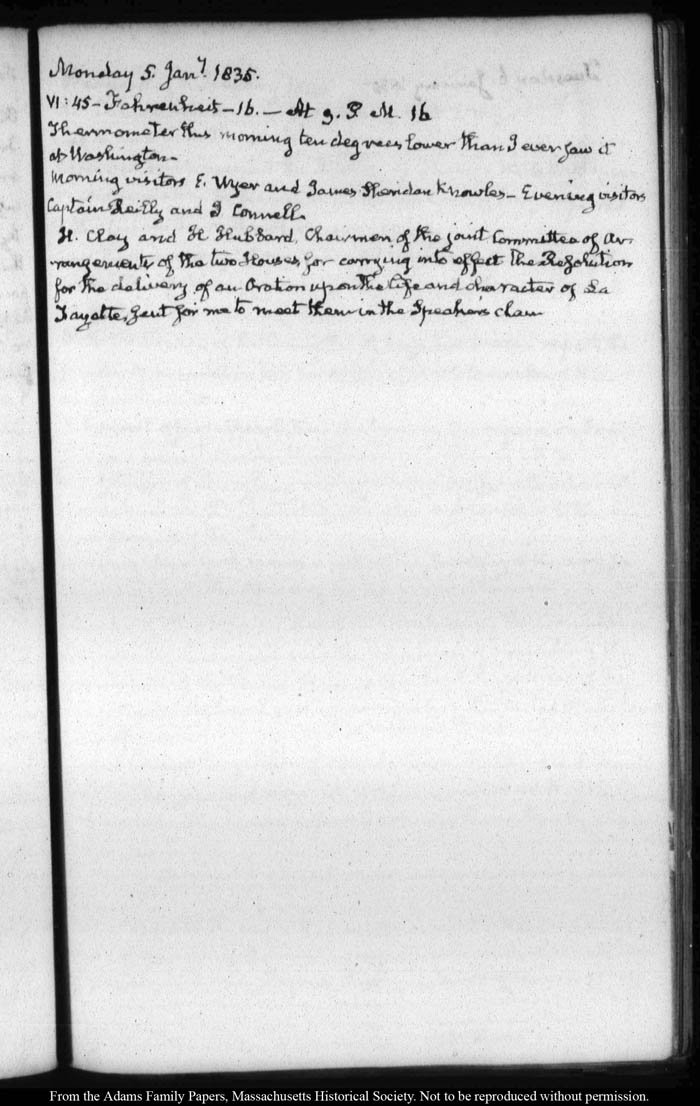 Monday 5. Jany. 1835.
VI: 45 - Fahrenheit - 16. — At 9. P M. 16
Thermometer this morning ten degrees lower than I ever saw it
at Washington -
Morning visitors E. Wyer and James Sheridan Knowles - Evening visitors
Captain Reilly and J Connell.
H. Clay and H Hubbard, Chairmen of the joint Committee of Ar-
rangements of the two Houses, for carrying into effect the Resolution
for the delivery of an Oration upon the Life and character of La
Fayette, sent for me to meet them in the Speaker's cham
From the Adams Family Papers, Massachusetts Historical Society. Not to be reproduced without permission.